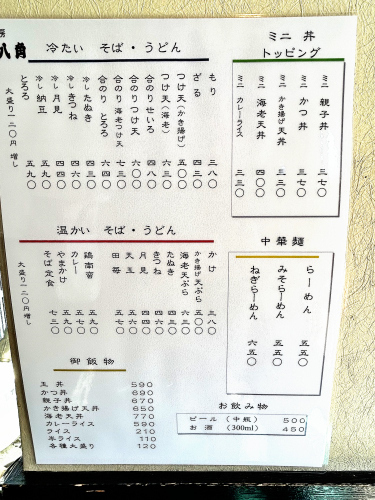 八角
冷たい そば・うどん
もり 三八〇
ざる 四三〇
つけ天（かき揚げ） 五三〇
つけ天（海老） 六三〇
合のりせいろ 四八〇
合のりつけ天
合のり海老つけ天 七三〇
合のり とろろ
冷し たぬき
冷し きつね 四四〇
冷し 月見 四四〇
冷し 納豆 五九〇
とろろ 五九〇
大盛り一二〇円 増し
ミニ 丼
トッピング
ミニ 親子丼 三七〇
ミニ かつ丼 三七〇
ミニ かき揚げ天丼 三三〇
ミニ 海老天丼 四〇〇
ミニ カレーライス 三三〇
温かい そば・うどん
かけ 三八〇
かき揚げ天ぷら 五〇〇
海老天ぷら 六三〇
たぬき 四四〇
きつね 四四〇
月見 四四〇
天玉
田毎
鶏南蛮 五九〇
カレー 五九〇
やまかけ 五九〇
そば定食 七三〇
大盛り一二〇円増し
中華麺
らーめん 五五〇
みそらーめん 五五〇
ねぎらーめん 六五〇
御飯物
玉丼 590
かつ丼 690
親子丼 670
かき揚げ天丼 650
海老天丼 770
カレーライス 590
ライス 210
半ライス 110
各種大盛り 120
お飲み物
ビール（中瓶） 500
お酒（300ml） 450